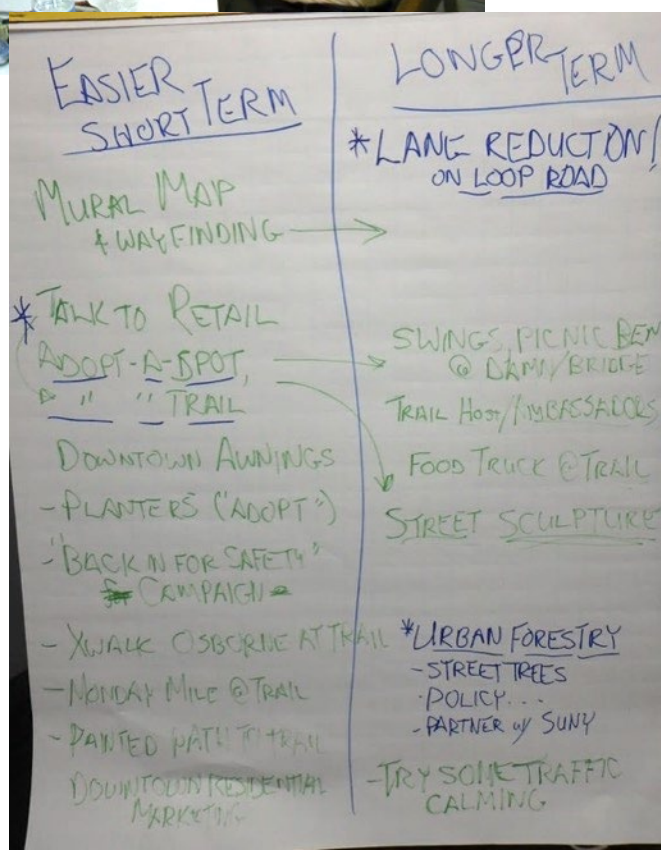 EASIER
SHORT TERM
MURAL MAP
& WAYFINDING
* TALK TO RETAIL
ADOPT-A-SPOT,
" " TRAIL
DOWNTOWN AWNINGS
- PLANTERS ("ADOPT")
- "BACK IN FOR SAFETY"
CAMPAIGN
- XWALK OSBORNE AT TRAIL
- MONDAY MILE @ TRAIL
- PAINTED PATH TO TRAIL
DOWNTOWN RESIDENTIAL
MARKETING
LONGER TERM
* LANE REDUCTION!
ON LOOP ROAD
SWINGS, PICNIC BEN
@ DAMN/BRIDGE
TRAIL HOST/AMBASSADORS
FOOD TRUCK @ TRAIL
STREET SCULPTURE
* URBAN FORESTRY
- STREET TREES
- POLICY...
- PARTNER w/ SUNY
- TRY SOME TRAFFIC
CALMING